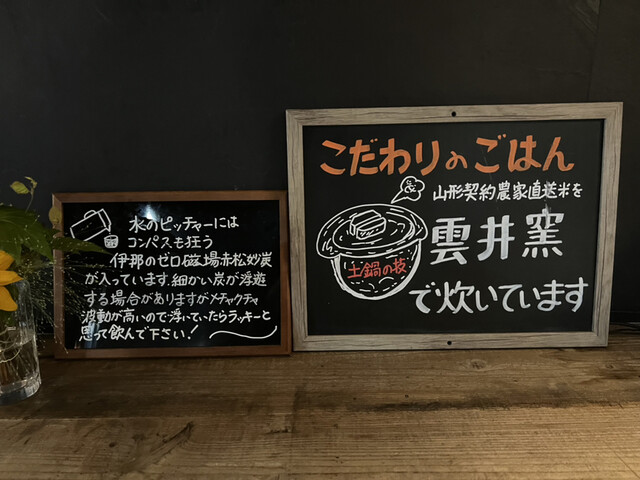 水のピッチャーには
コンパスも狂う
伊那のゼロ磁場赤松妙炭
が入っています。細かい炭が浮遊
する場合がありますがメチャクチャ
波動が高いので浮いていたらラッキーと
思って飲んで下さい!
こだわりのごはん
山形契約農家直送米を
雲井窯
土鍋の技
で炊いています